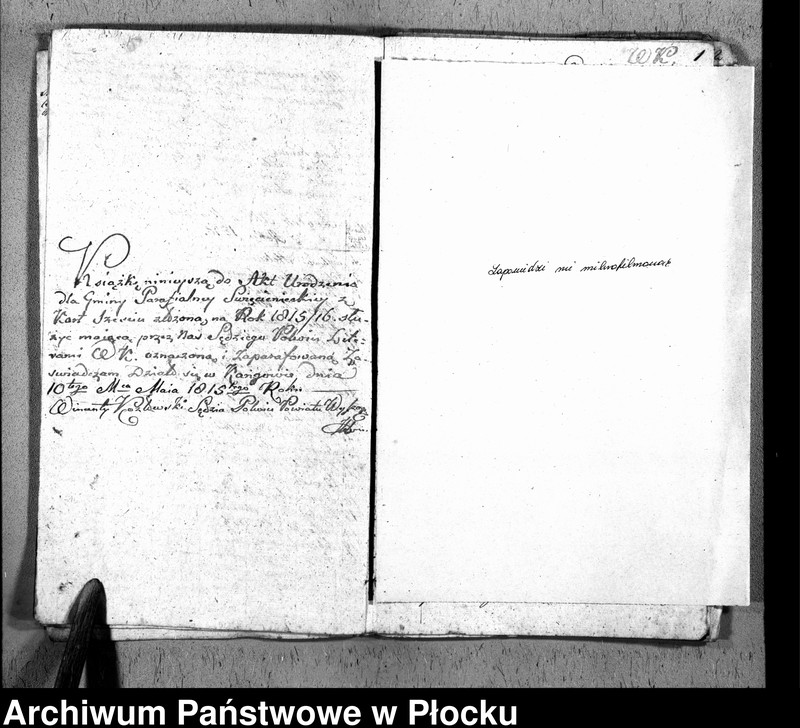 Książkę ninieyszą do Akt Urodzenia
dla Gminy Parafialney Swięcienieckiey z
Kart Sześciu złożoną na Rok 1815/16 słu-
żyć maiącą przez Nas Sędziego Pokoiu Lite-
rami WK. oznaczoną i Zaparafowaną Za-
swiadczam Działo się w dnia
10tego Mca Maia 1815tego Roku
Wincenty Kozłowski Sędzia Pokoiu Powiatu
WK. 1
Zapowiedzi nie mikrofilmować
Archiwum Państwowe w Płocku